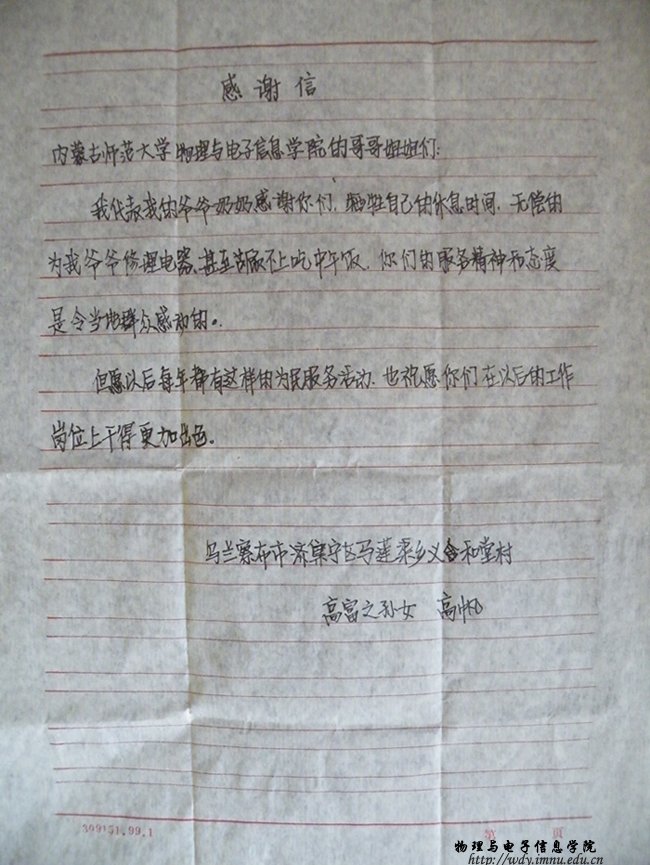 感谢信
内蒙古师范大学物理与电子信息学院的哥哥姐姐们:
我代表我的爷爷奶奶感谢你们,牺牲自己的休息时间,无偿的
为我爷爷修理电器,甚至顾不上吃中午饭,你们的服务精神和态度
是令当地群众感动的。
但愿以后每年都有这样的为民服务活动,也祝愿你们在以后的工作
岗位上干得更加出色。
乌兰察布市集宁区马莲渠乡义合和堂村
高富之孙女 高帆
309151.99.1 第 页
物理与电子信息学院
http://wdy.imnu.edu.cn